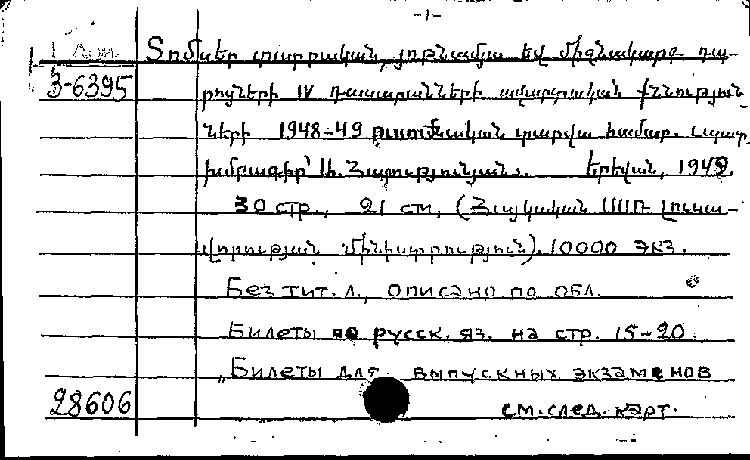 -1-
Տոմսեր տարրական, յոթնամյա եվ միջնակարգ դպ-
3-6395 րոցների IV դասարանների ավարտական քննություն-
ների 1948-49 ուսումնական տարվա համար.
խմբագիր՝ Երեվան, 1949.
30 стр., 21 см, (Հայկական ՍՍՌ Լուսա-
վորության մինիստրություն). 10000 экз.
Без тит. л., описано по обл.
Билеты на русск. яз. на стр. 15-20.
„Билеты для выпускных экзаменов
28606 см. след. карт.